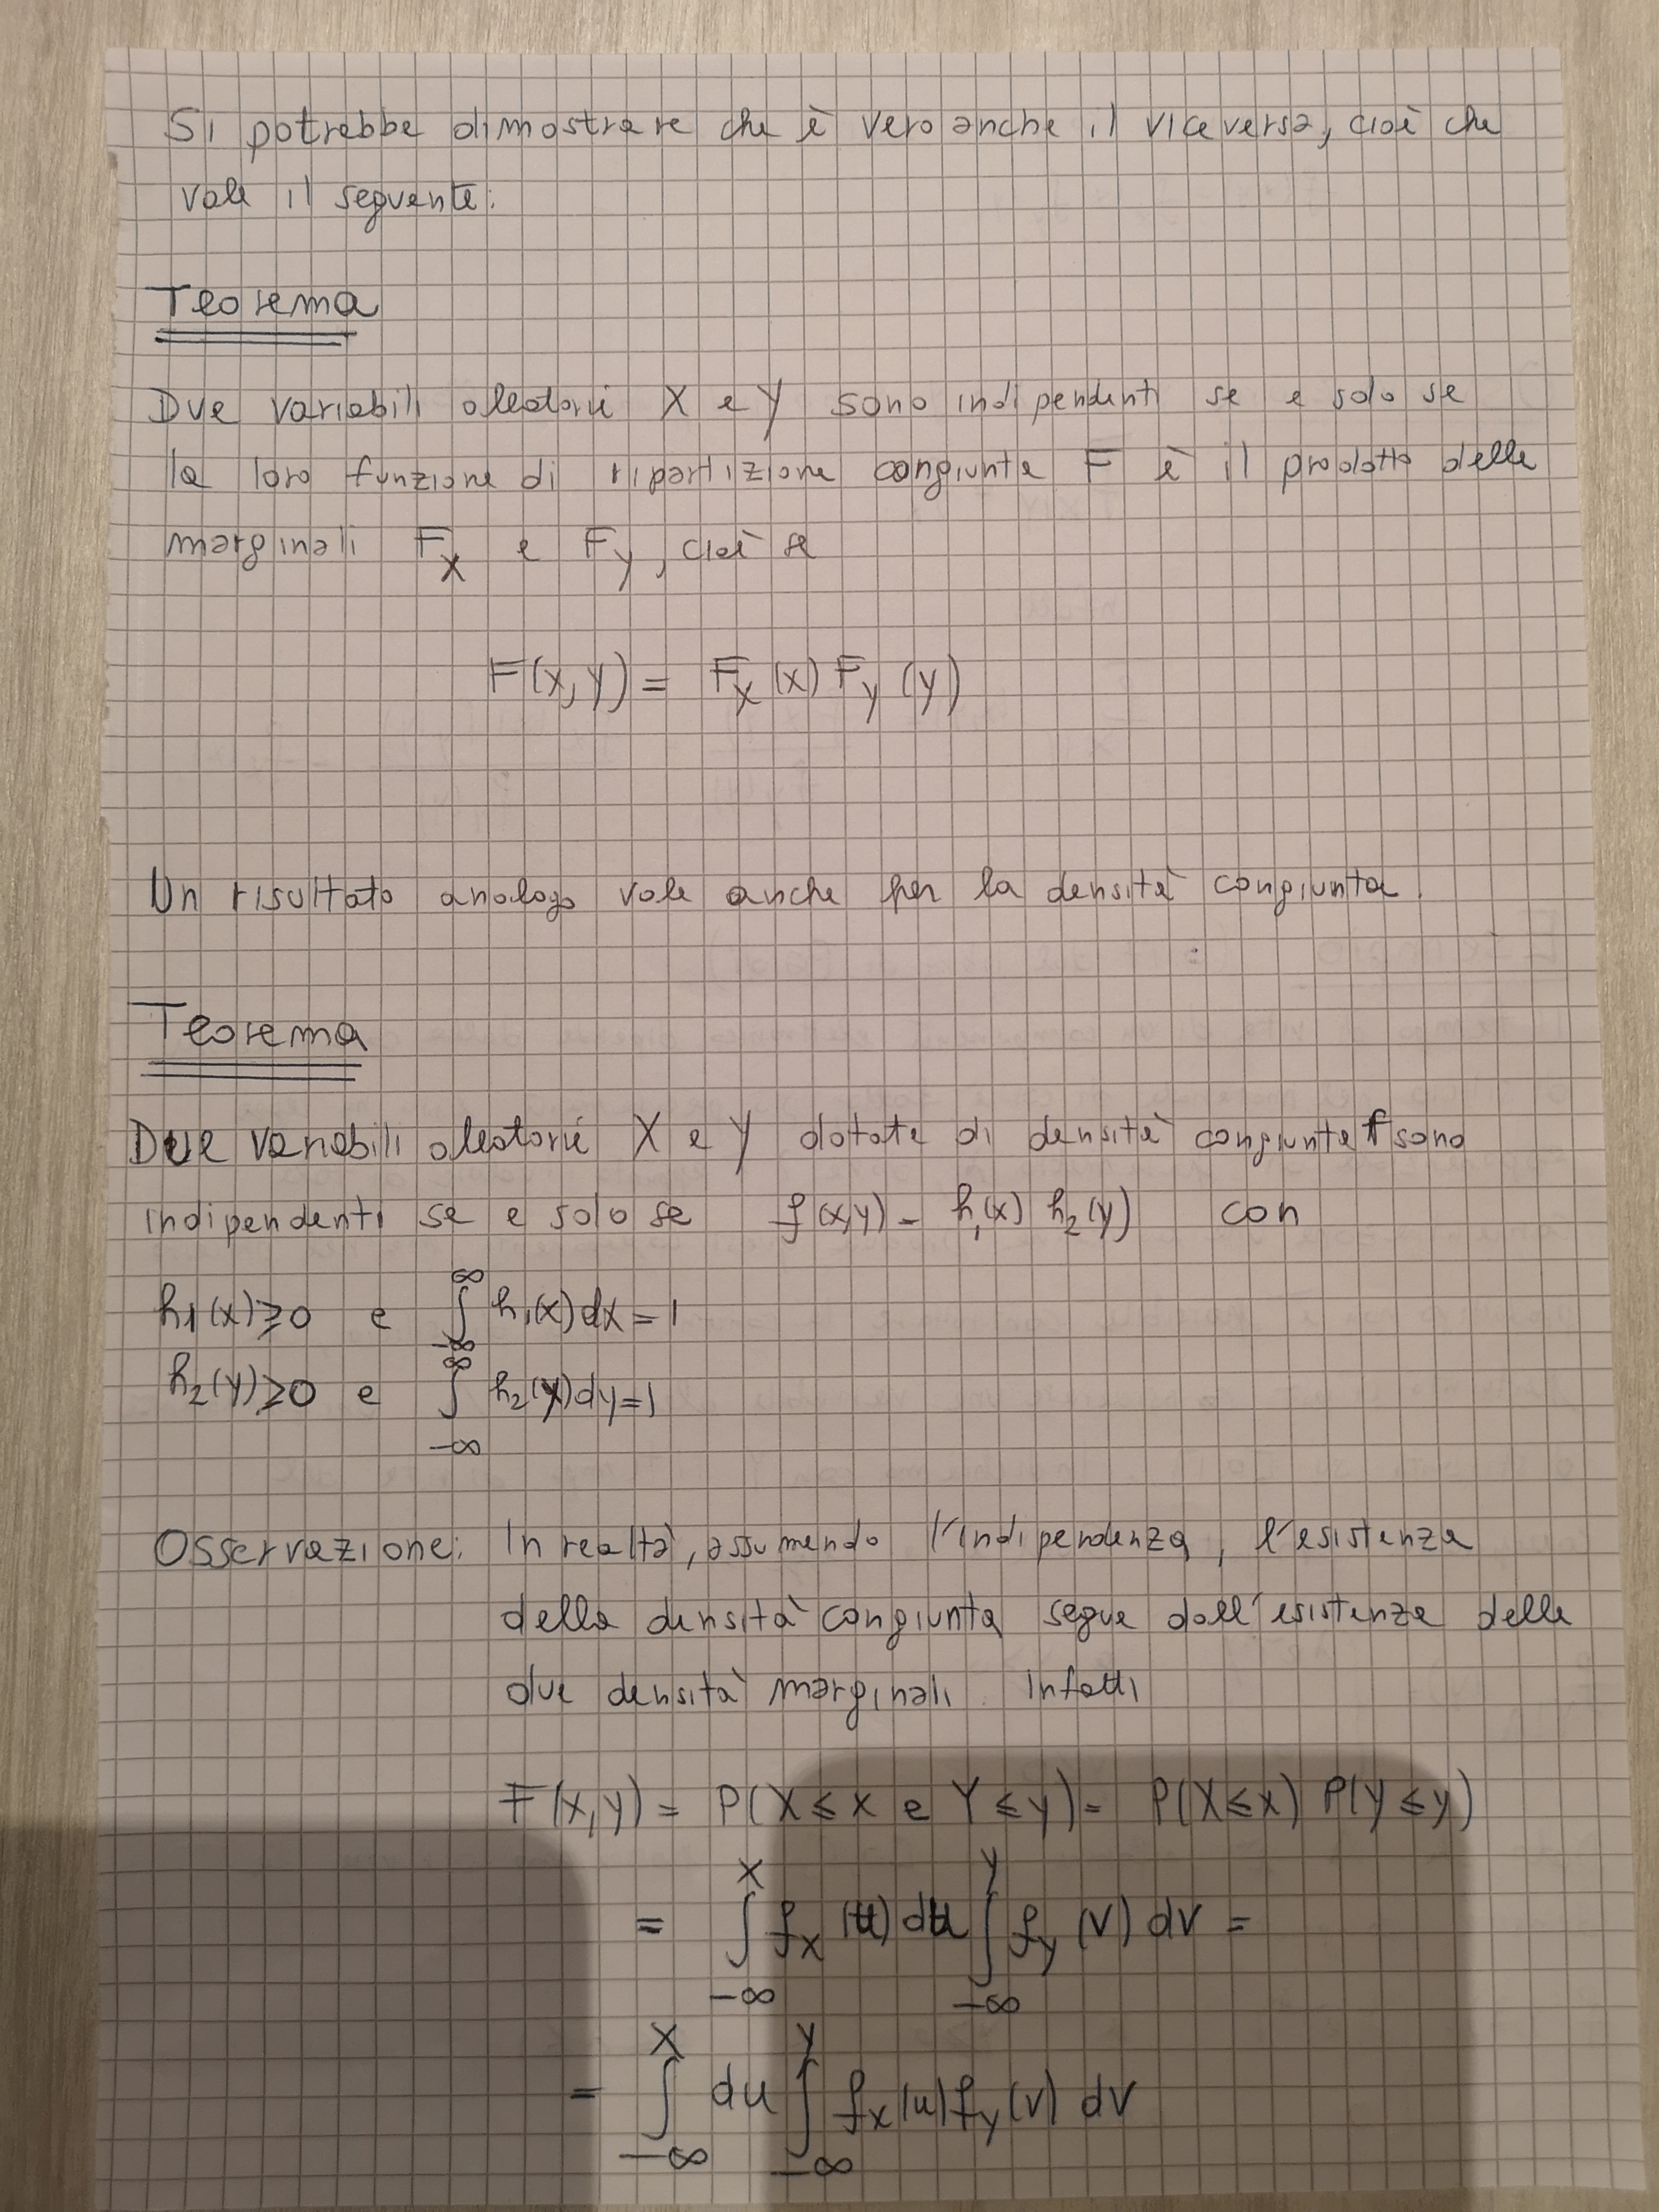 Si potrebbe dimostrare che è vero anche il viceversa, cioè che
vale il seguente:
Teorema
Due variabili aleatorie X e Y sono indipendenti se e solo se
la loro funzione di ripartizione congiunta F è il prodotto delle
marginali F_X e F_Y, cioè se
F(x,y) = F_X (x) F_Y (y)
Un risultato analogo vale anche per la densità congiunta.
Teorema
Due variabili aleatorie X e Y dotate di densità congiunta f sono
indipendenti se e solo se f(x,y) = h₁(x) h₂(y) con
h₁(x) ≥ 0 e ∫_{-∞}^{∞} h₁(x)dx = 1
h₂(y) ≥ 0 e ∫_{-∞}^{∞} h₂(y)dy = 1
Osservazione: In realtà, assumendo l'indipendenza, l'esistenza
della densità congiunta segue dall'esistenza delle
due densità marginali. Infatti
F(x,y) = P(X ≤ x e Y ≤ y) = P(X ≤ x) P(Y ≤ y)
= ∫_{-∞}^{x} f_X (u) du ∫_{-∞}^{y} f_Y (v) dv =
= ∫_{-∞}^{x} du ∫_{-∞}^{y} f_X (u) f_Y (v) dv